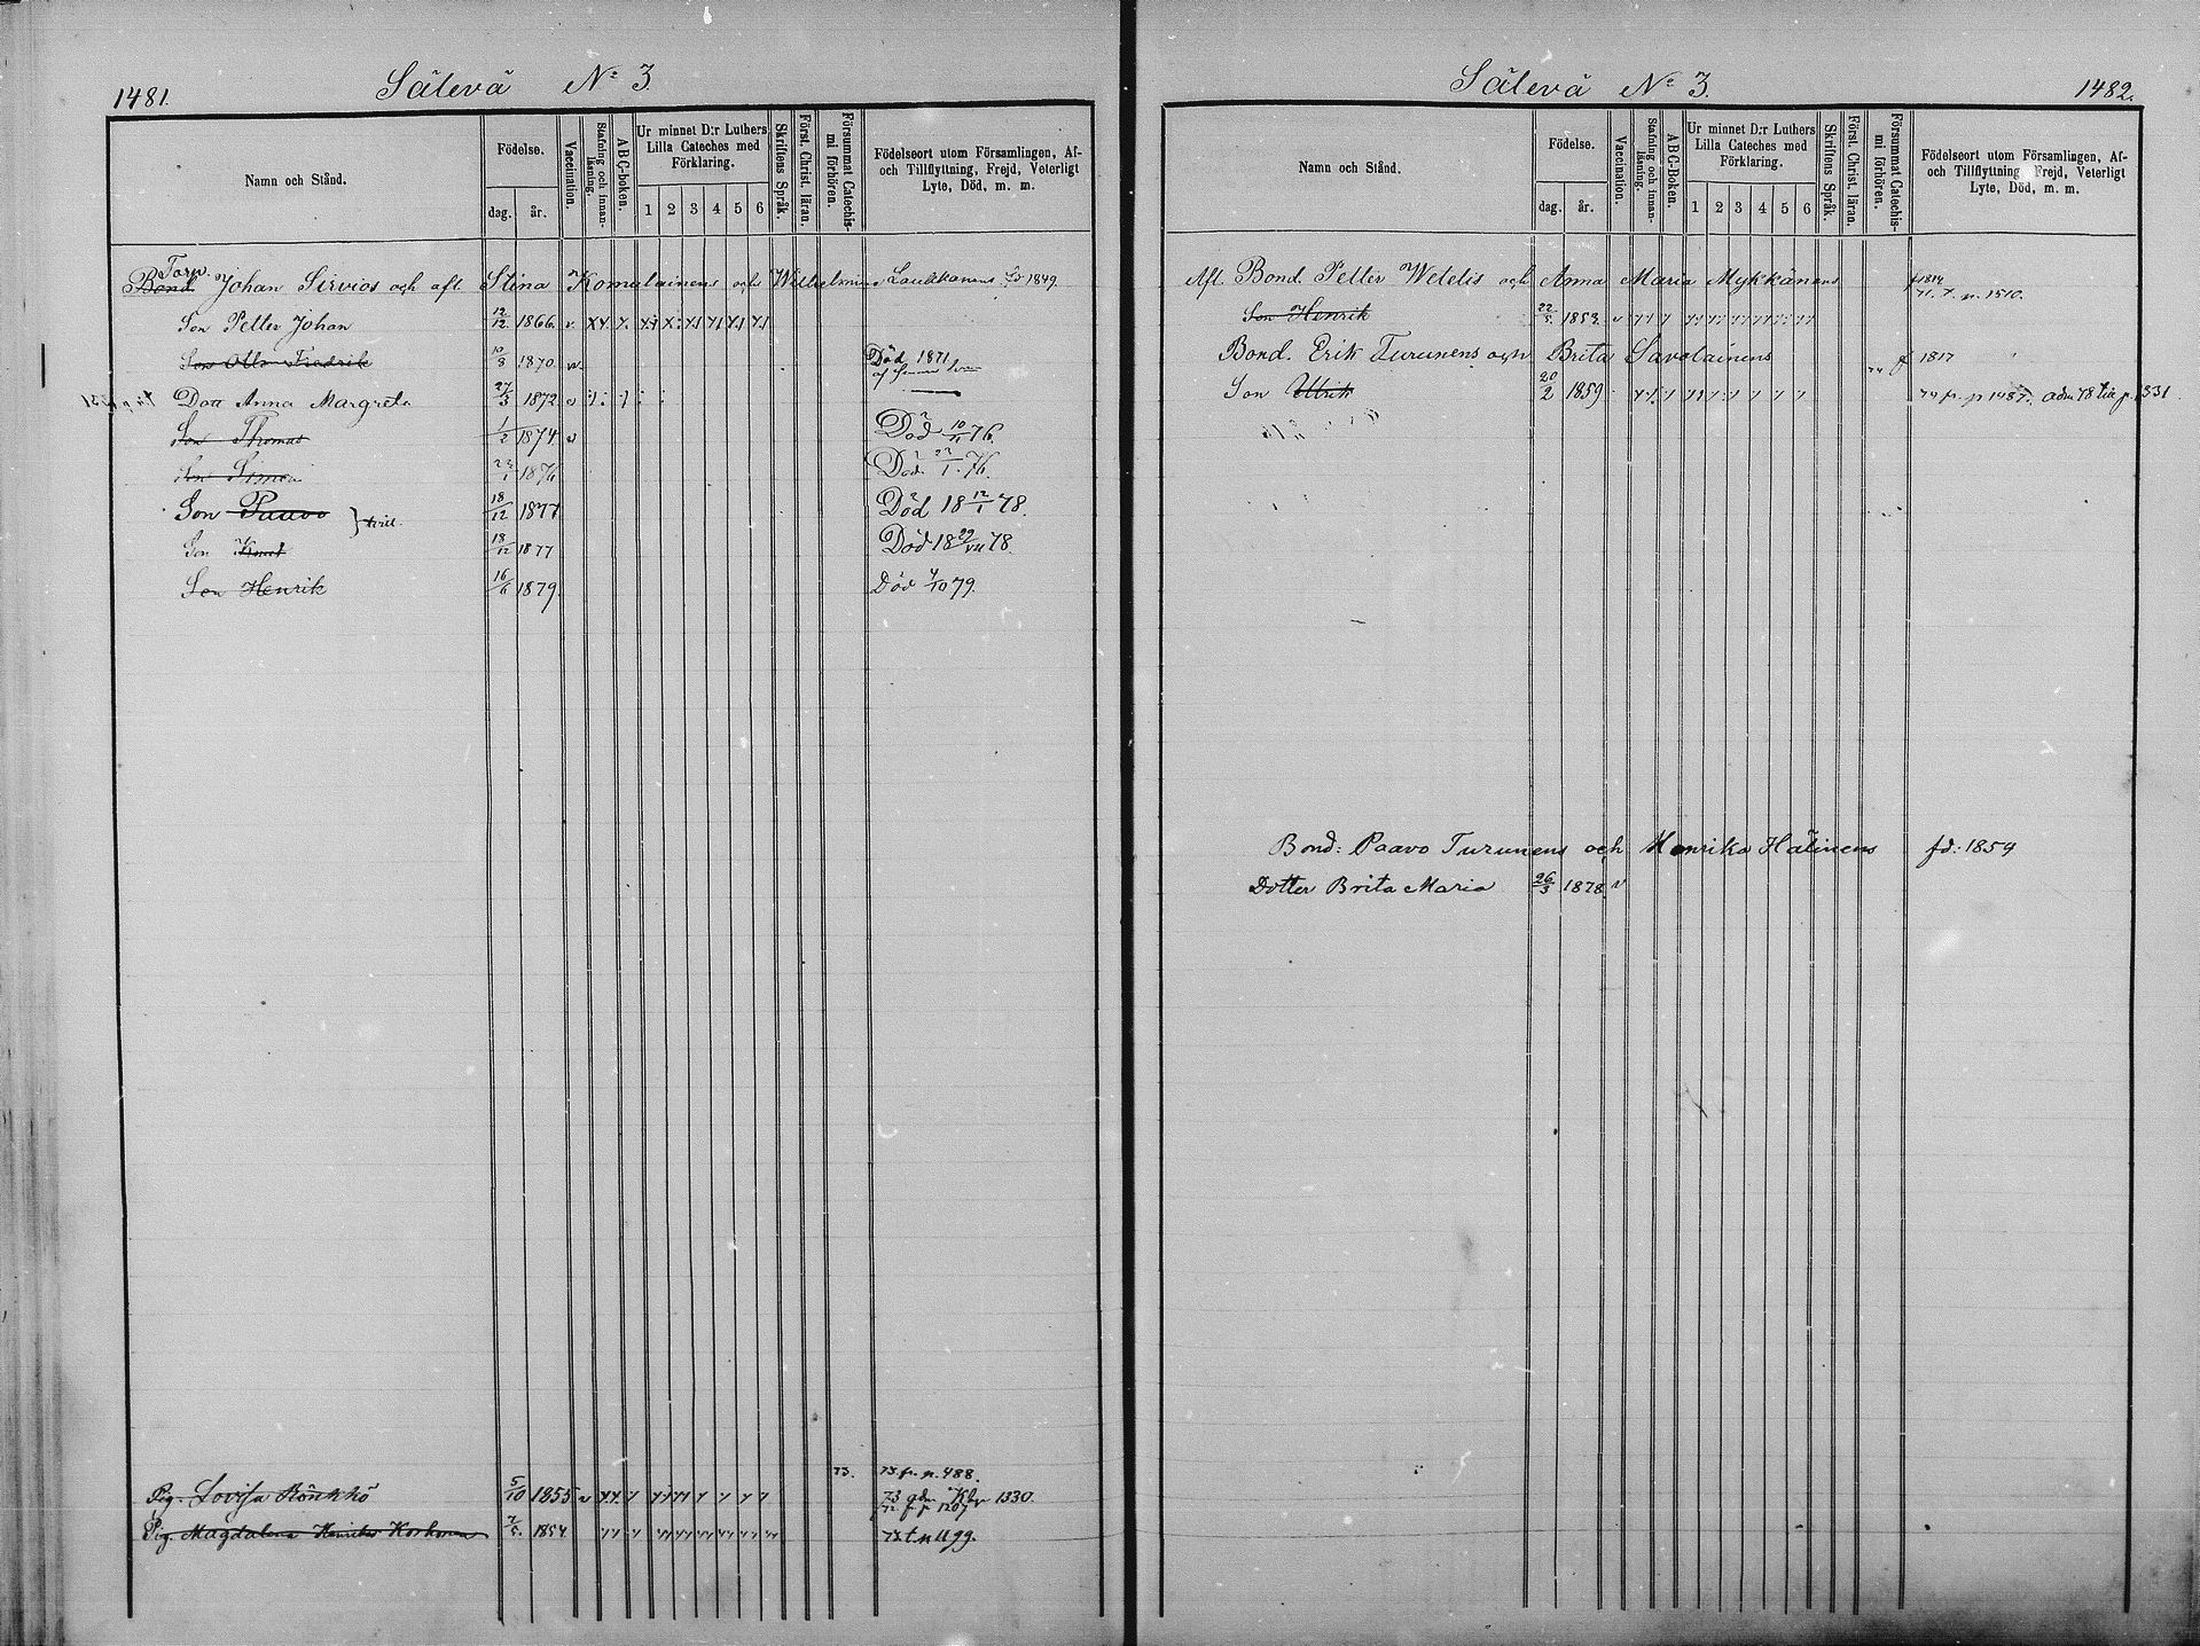 1481.
Sälevä № 3.
Namn och Stånd.
Födelse.
dag.
år.
Vaccination.
Stafning och innan-
läsning.
ABC-boken.
Ur minnet D:r Luthers
Lilla Cateches med
Förklaring.
1 2 3 4 5 6
Skriftens Språk.
Först. Christ. läran.
Försummat Catechis-
mi förhören.
Födelseort utom Församlingen, Af-
och Tillflyttning, Frejd, Veterligt
Lyte, Död, m. m.
Torp.
Bond. Johan Sirviös och afl. Stina Komulainens och Wilhelmina Laukkanens fd 1849.
Son Petter Johan 12/12 1866. v.
Son Otto Fredrik 10/3 1870 v. Död 1871
Dott Anna Margreta 27/3 1872 v
Son Thomas 1/2 1874 v Död 10/11 76.
Son Simon 22/1 1876 Död 22/1 76.
Son Paavo 18/12 1877 Död 18 12/1 78.
tvill.
Son Knut 18/12 1877 Död 18 29/VII 78.
Son Henrik 16/6 1879. Död 4/10 79.
73. 73. fr. p. 488.
Pig. Lovisa Rönkkö 5/10 1855 v 73 adm. 1330.
72. fr. p. 1207
Pig. Magdalena Henrika Korhonen 7/5. 1854
1482.
Sälevä № 3.
Namn och Stånd.
Födelse.
dag.
år.
Vaccination.
Stafning och innan-
läsning.
ABC-Boken.
Ur minnet D:r Luthers
Lilla Cateches med
Förklaring.
1 2 3 4 5 6
Skriftens Språk.
Först. Christ. läran.
Försummat Catechis-
mi förhören.
Födelseort utom Församlingen, Af-
och Tillflyttning, Frejd, Veterligt
Lyte, Död, m. m.
Afl. Bond. Petter Wetelis och Anna Maria Mykkänens f 1814
71. t. p. 1510.
Son Henrik 22/5. 1853. v
Bond. Erik Turunens och Brita Savolainens f 1817
Son Ulrik 20/2 1859 74 fr. p 1487. adm 78 p. 1331
Bond: Paavo Turunens och Henrika Hälinens fd: 1859
Dotter Brita Maria 26/3 1878. v